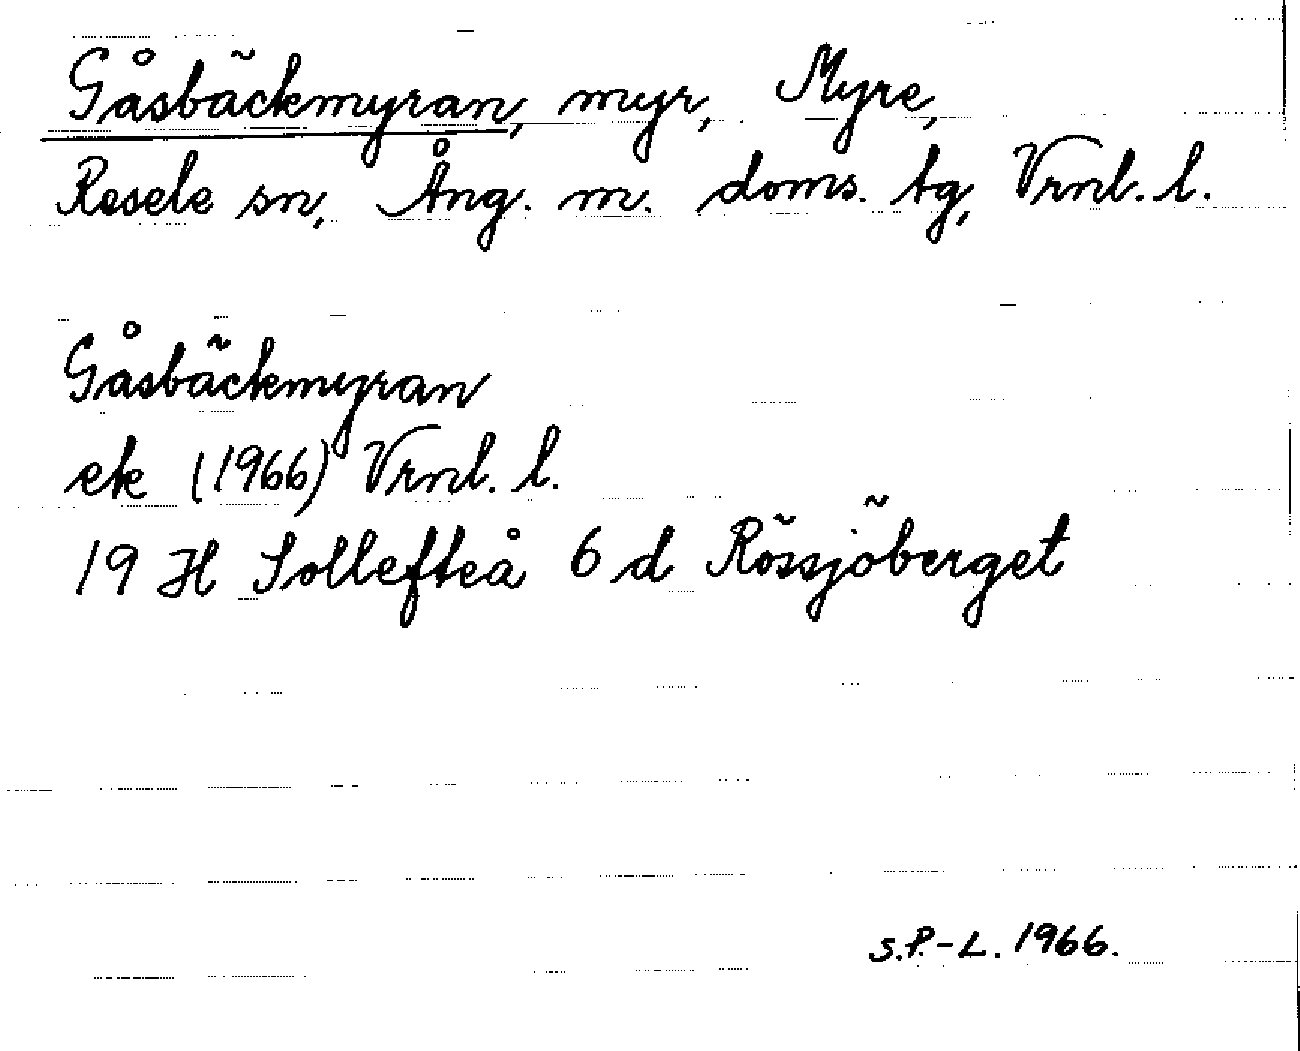 Gåsbäckmyran, myr, Myre,
Resele sn, Ång. m. doms. tg, Vrnl. l.
Gåsbäckmyran
ek (1966) Vrnl. l.
19 H Sollefteå 6 d Rössjöberget
S.P.-L. 1966.